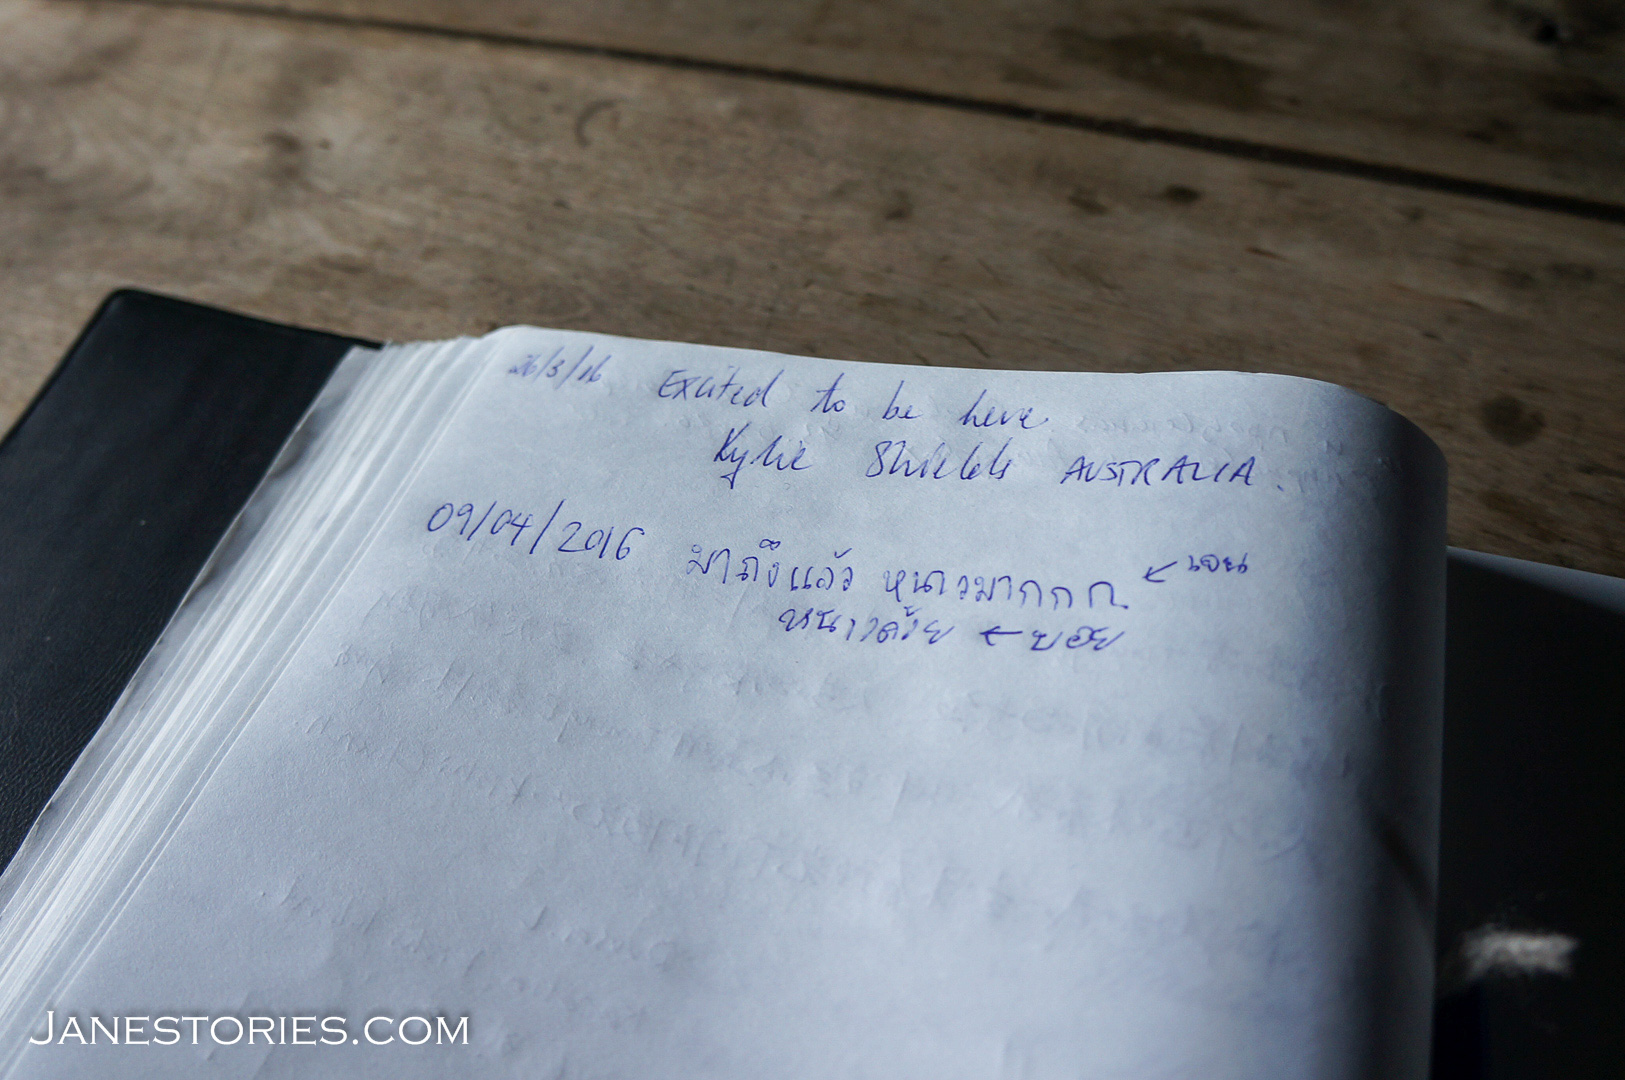 26/3/16 Excited to be here.
Kylie Shields AUSTRALIA.
09/04/2016 มาถึงแล้ว หนาวมากกก ← เจน
หนาวด้วย ← บอย
JANESTORIES.COM